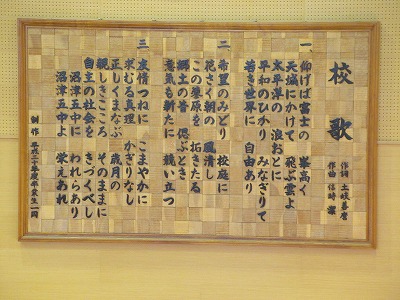 校歌
作詞 土岐善麿
作曲 信時潔
一、仰げば富士の 峯高く
天城にかけて 飛ぶ雲よ
太平洋の 浪おとに
平和のひかり みなぎりて
若き世界に 自由あり
二、希望のみどり 校庭に
花さく朝の 風清し
この楽原を 拓きたる
郷土の昔 偲ぶとき
意気も新たに 競い立つ
三、友情つねに こまやかに
求むる真理 かぎりなし
正しくまなぶ 歳月の
親しきこころ そのままに
自主の社会を きづくべし
沼津五中に われらあり
沼津五中よ 栄えあれ
制作 平成二十年度卒業生一同